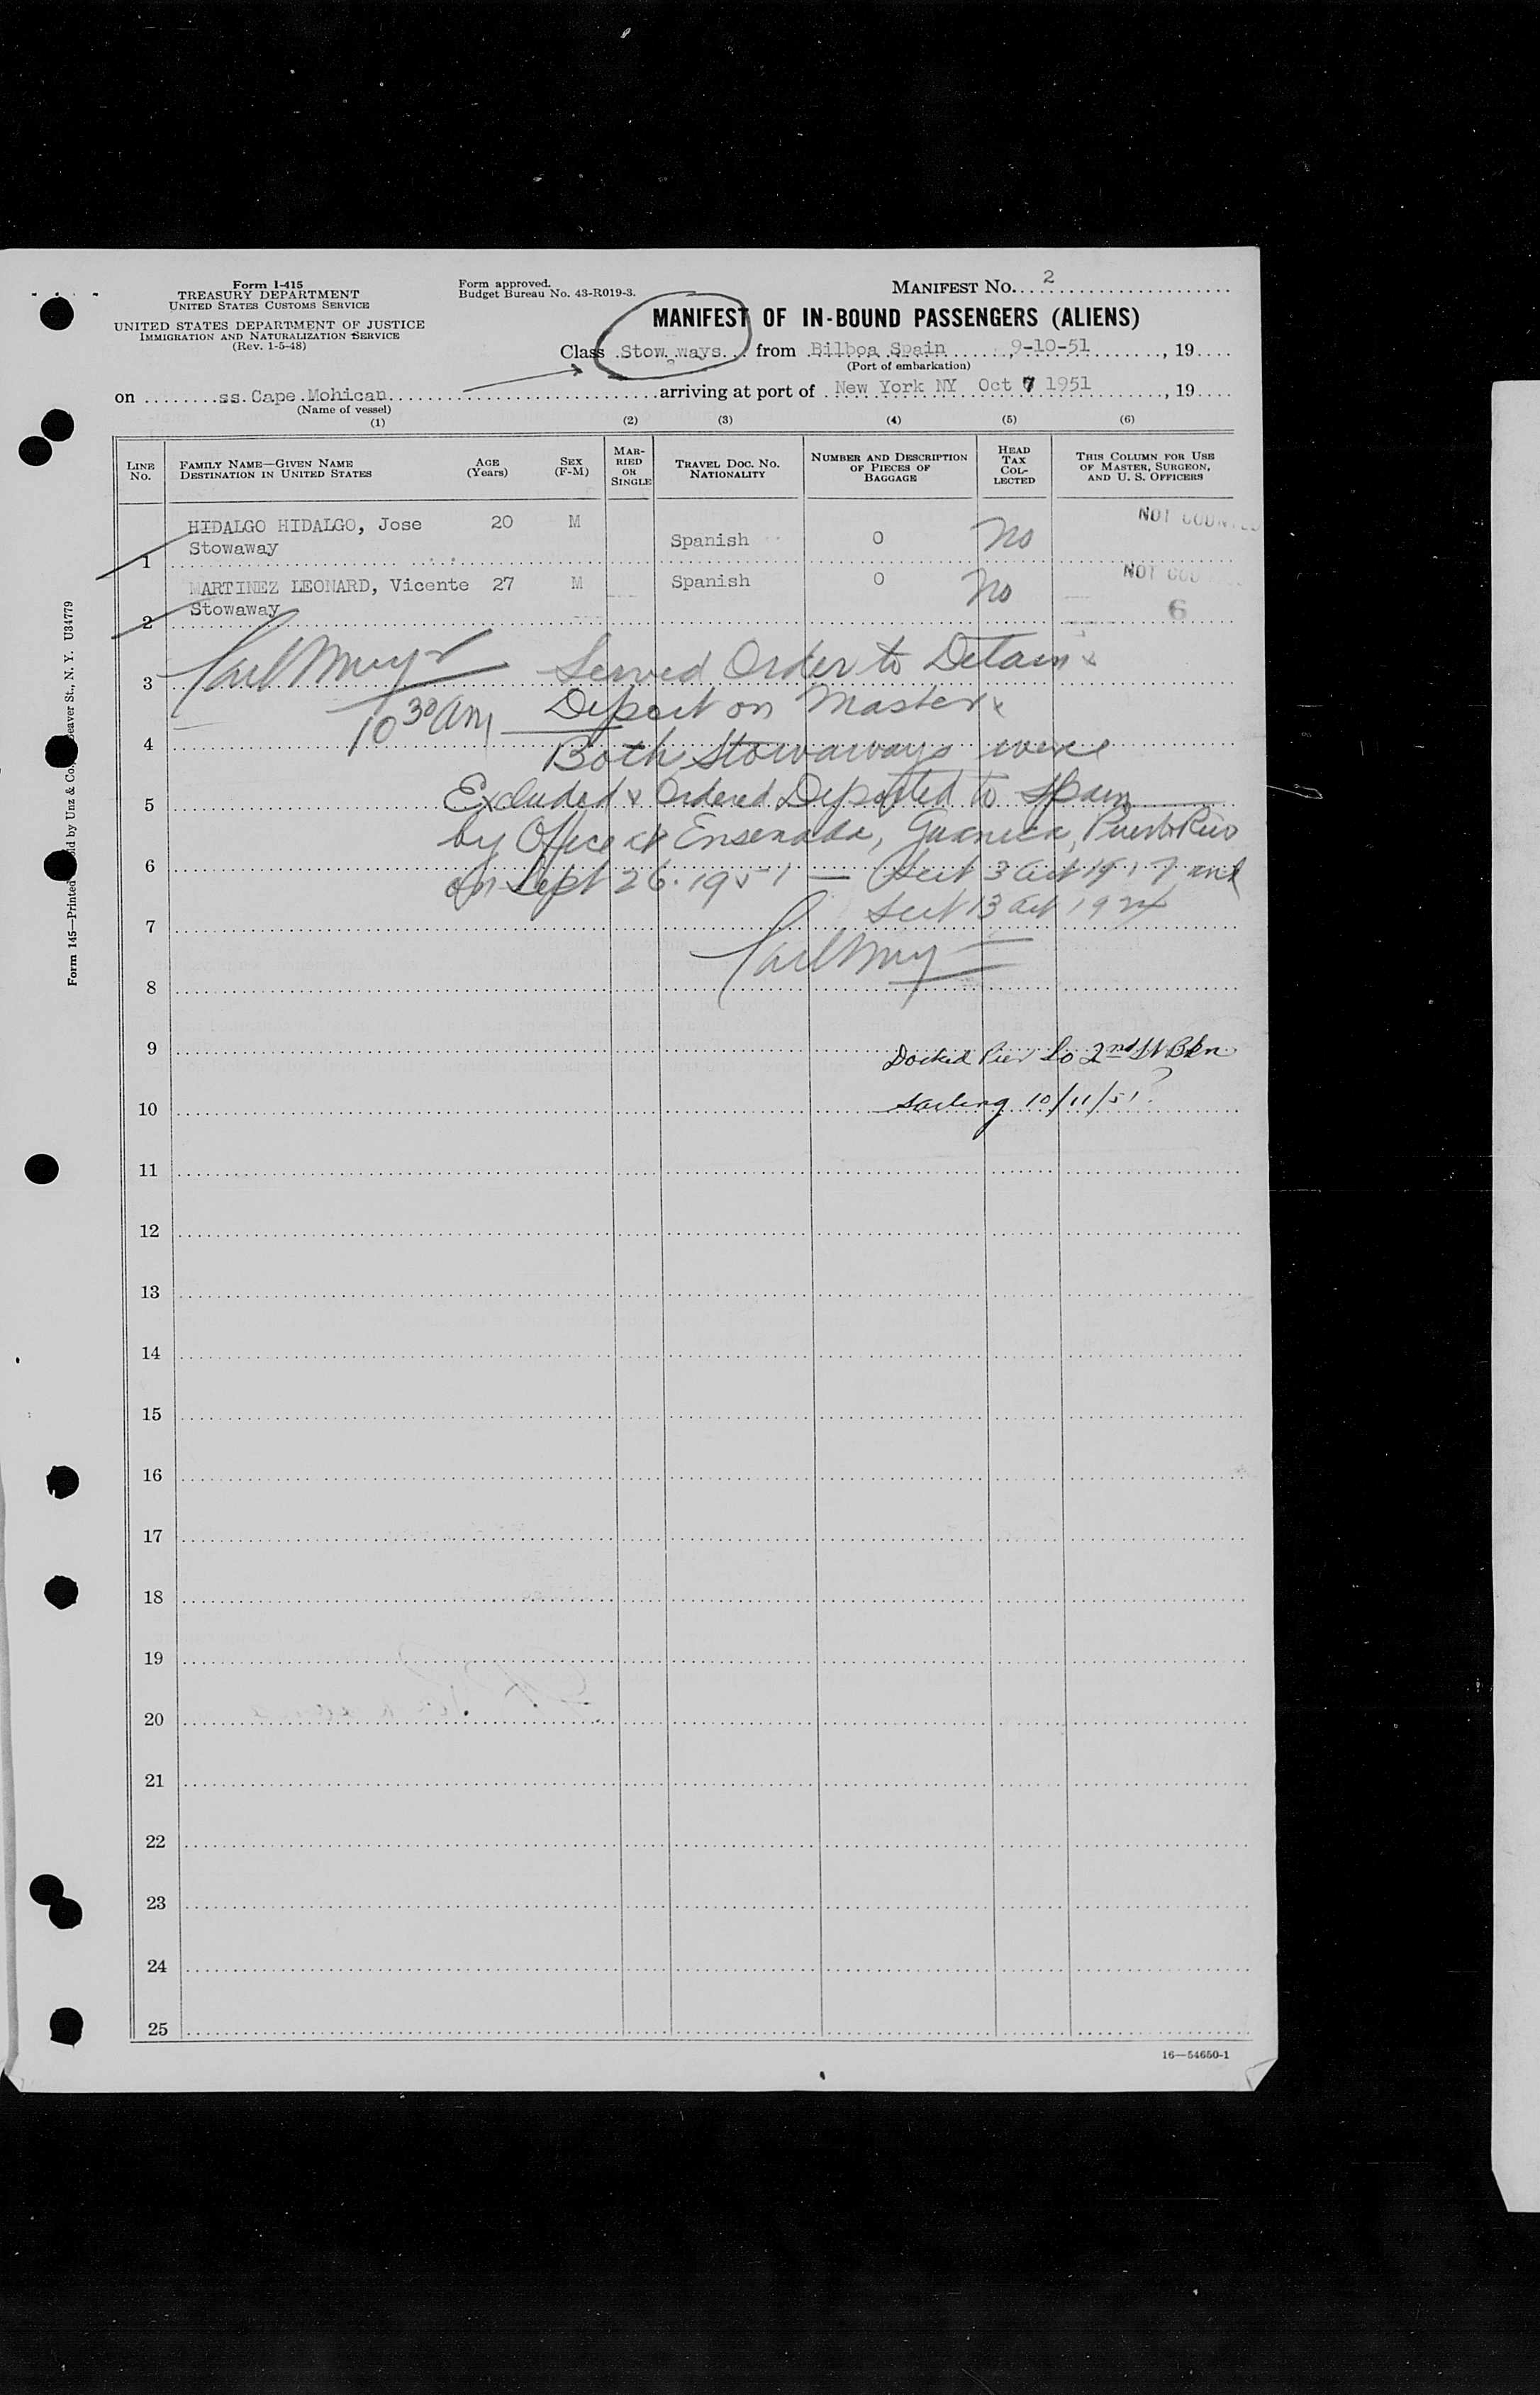 Form I-415
TREASURY DEPARTMENT
UNITED STATES CUSTOMS SERVICE
UNITED STATES DEPARTMENT OF JUSTICE
IMMIGRATION AND NATURALIZATION SERVICE
(Rev. 1-5-48)
Form approved.
Budget Bureau No. 43-R019-3.
MANIFEST NO. 2
MANIFEST OF IN-BOUND PASSENGERS (ALIENS)
Class Stowaways from Bilboa Spain, 9-10-51, 19
(Port of embarkation)
on ss Cape Mohican arriving at port of New York NY Oct 7 1951, 19
(Name of vessel)
(1) (2) (3) (4) (5) (6)
LINE NO.
FAMILY NAME—GIVEN NAME
DESTINATION IN UNITED STATES
AGE (Years)
SEX (F-M)
MAR-RIED OR SINGLE
TRAVEL DOC. NO. NATIONALITY
NUMBER AND DESCRIPTION OF PIECES OF BAGGAGE
HEAD TAX COL-LECTED
THIS COLUMN FOR USE OF MASTER, SURGEON, AND U. S. OFFICERS
HIDALGO HIDALGO, Jose 20 M NOT COUNTED
Stowaway Spanish 0 No
1
MARTINEZ LEONARD, Vicente 27 M Spanish 0 No NOT COU
Stowaway 6
2
Served Order to Detain &
3
10 30 am Deport on Master &
4
Both Stowaways were
5
Excluded & Ordered Deported to Spain
by Office at Ensenada, Guanica, Puerto Rico
6
on Sept 26. 1951 — Sect 3 Act 1917 and
Sect 13 Act 1924
7
8
9
Docked Pier So 2nd St Bkn
10
Sailing 10/11/51?
11
12
13
14
15
16
17
18
19
20
21
22
23
24
25
16—54650-1
Form 145—Printed
Sold by Unz & Co.,
Beaver St., N. Y. U34779